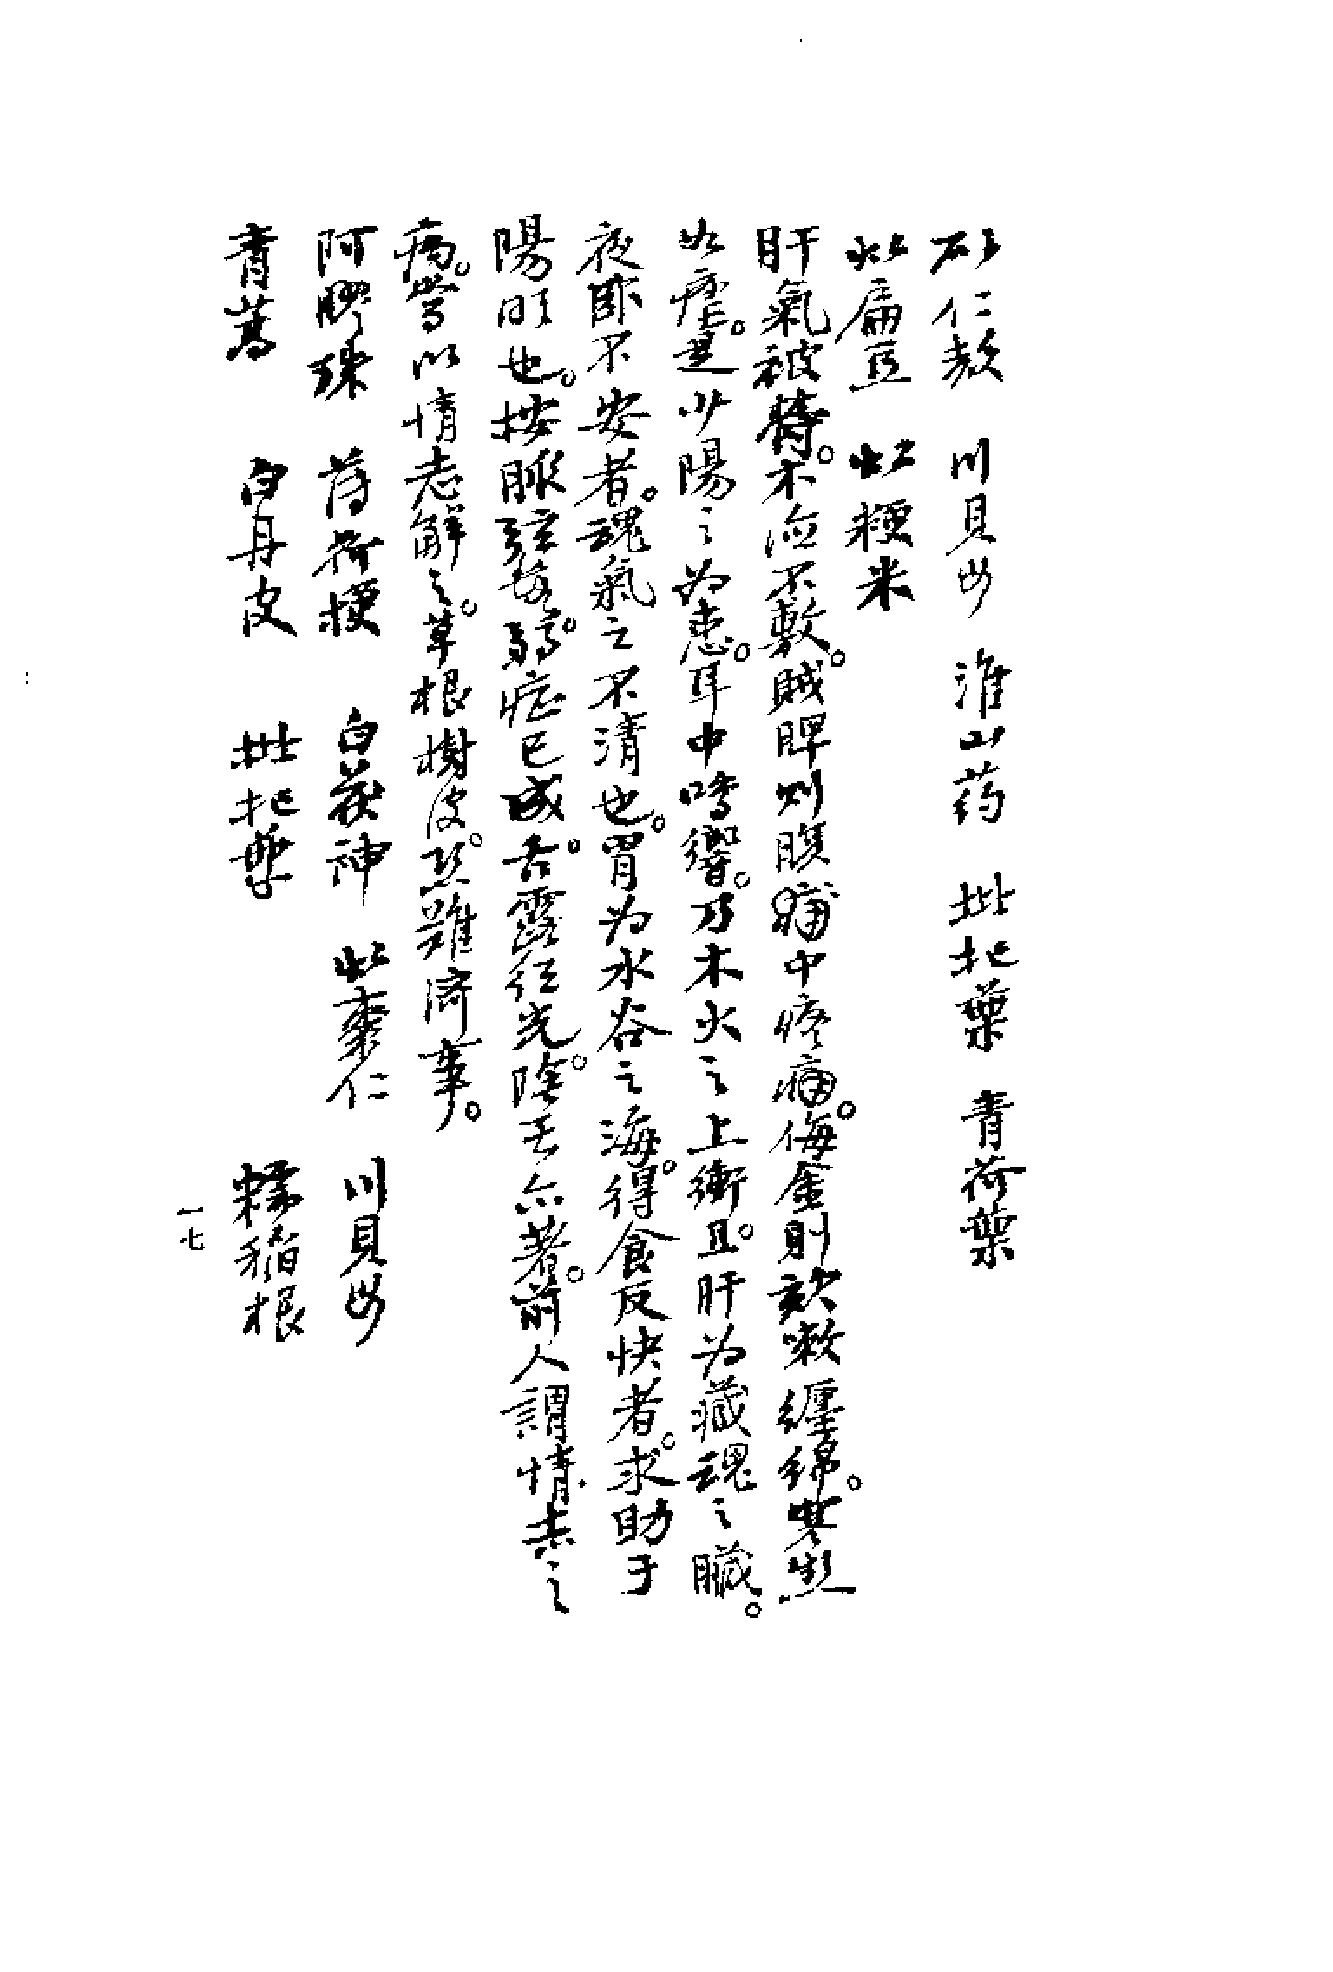 砂仁殼　川貝母　淮山药　枇杷葉　青荷葉
炒扁豆　炒粳米
肝氣被鬱。木迹不敷。賊脾则腹痛中疼痛。侮金則欬嗽纏綿。寒熱
如瘧。是少陽之为患。耳中鸣響。乃木火之上衝。且肝为藏魂之臟。
夜卧不安者。魂氣之不清也。胃为水谷之海。得食反快者。求助于
陽明也。按脈弦數弱。症已成。舌露紅光。陰亏亦著。前人謂情志之
病。當以情志解之。草根樹皮。恐難濟事。
阿膠珠　薄荷梗　白茯神　炒棗仁　川貝母
青蒿　白丹皮　枇杷葉　糯稻根
一七